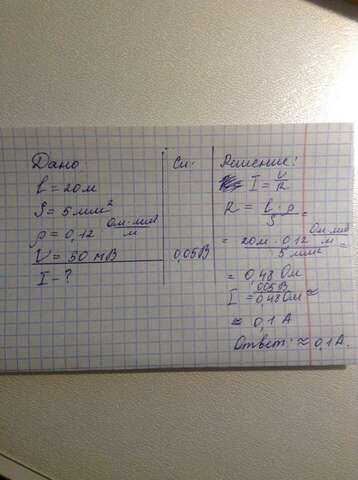 Дано:
l = 20м
S = 5мм²
ρ = 0,12 Ом·мм²/м
U = 50 мВ
I - ?
Си:
0,05В
Решение:
I = U/R
R = l · ρ / S =
= 20м · 0,12 Ом·мм²/м / 5мм² =
= 0,48 Ом
I = 0,05В / 0,48Ом ≈
≈ 0,1 А
Ответ: ≈ 0,1А.